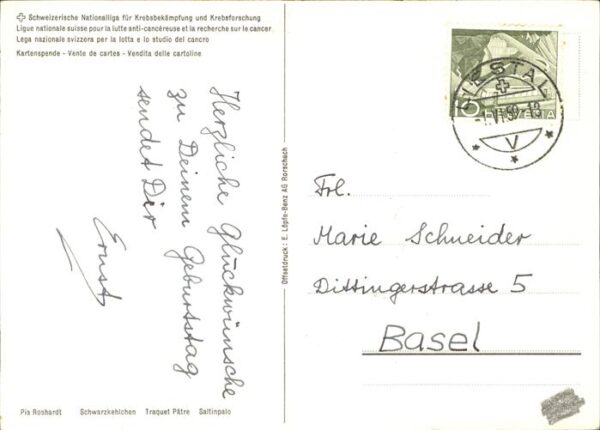 Schweizerische Nationalliga für Krebsbekämpfung und Krebsforschung
Ligue nationale suisse pour la lutte anti-cancéreuse et la recherche sur le cancer
Lega nazionale svizzera per la lotta e lo studio del cancro
Kartenspende - Vente de cartes - Vendita delle cartoline
Herzliche Glückwünsche
zu Deinem Geburtstag
sendet Dir
Ernst
Pia Roshardt Schwarzkehlchen Traquet Pâtre Saltinpalo
Offsetdruck: E. Löpfe-Benz AG Rorschach
5
HELVETIA
LIESTAL
VI.59-13
V
Frl.
Marie Schneider
Dittingerstrasse 5
Basel